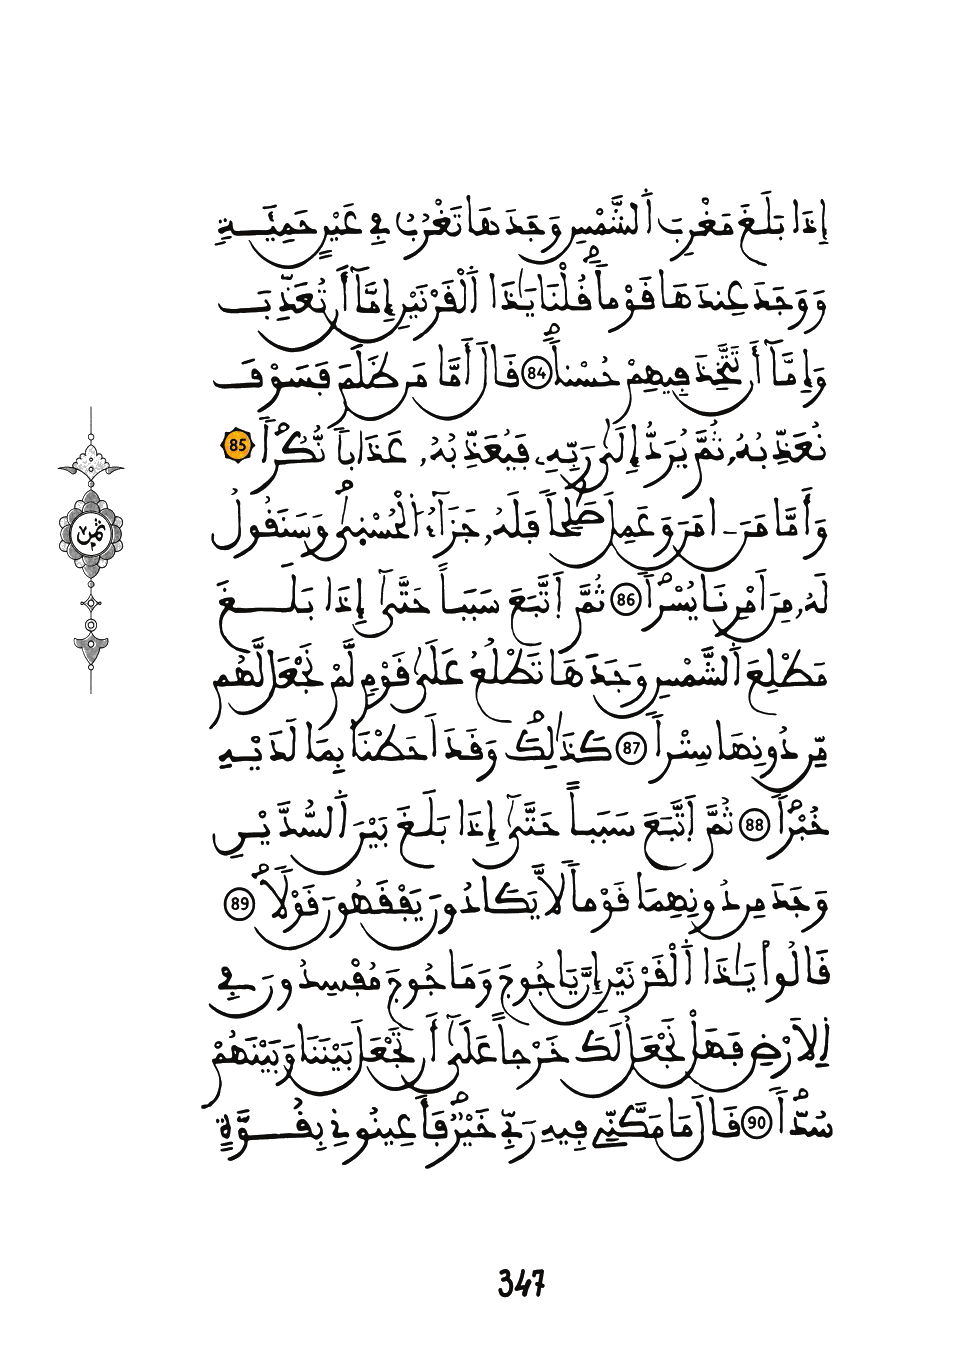 إِذَا بَلَغَ مَغْرِبَ اَ۬لشَّمْسِ وَجَدَهَا تَغْرُبُ فِے عَيْنٍ حَمِئَةٖ
وَوَجَدَ عِندَهَا قَوْماٗۖ قُلْنَا يَٰذَا اَ۬لْقَرْنَيْنِ إِمَّآ أَن تُعَذِّبَ
وَإِمَّآ أَن تَتَّخِذَ فِيهِمْ حُسْناٗۖ 84 قَالَ أَمَّا مَن ظَلَمَ فَسَوْفَ
نُعَذِّبُهُۥ ثُمَّ يُرَدُّ إِلَيٰ رَبِّهِۦ فَيُعَذِّبُهُۥ عَذَاباٗ نُّكْراٗۖ 85
وَأَمَّا مَنَ اٰمَنَ وَعَمِلَ صَٰلِحاٗ فَلَهُۥ جَزَآءُ اُ۬لْحُسْنۭيٰۖ وَسَنَقُولُ
لَهُۥ مِنَ اَمْرِنَا يُسْراٗۖ 86 ثُمَّ اَ۪تَّبَعَ سَبَباً حَتَّيٰٓ إِذَا بَلَغَ
مَطْلِعَ اَ۬لشَّمْسِ وَجَدَهَا تَطْلُعُ عَلَيٰ قَوْمٖ لَّمْ نَجْعَل لَّهُم
مِّن دُونِهَا سِتْراٗ 87 كَذَٰلِكَۖ وَقَدَ اَحَطْنَا بِمَا لَدَيْهِ
خُبْراٗۖ 88 ثُمَّ اَ۪تَّبَعَ سَبَباً حَتَّيٰٓ إِذَا بَلَغَ بَيْنَ اَ۬لسُّدَّيْنِ
وَجَدَ مِن دُونِهِمَا قَوْماٗ لَّا يَكَادُونَ يَفْقَهُونَ قَوْلاٗۖ 89
قَالُواْ يَٰذَا اَ۬لْقَرْنَيْنِ إِنَّ يَاجُوجَ وَمَاجُوجَ مُفْسِدُونَ فِے
اِ۬لَارْضِ فَهَلْ نَجْعَلُ لَكَ خَرْجاً عَلَيٰٓ أَن تَجْعَلَ بَيْنَنَا وَبَيْنَهُمْ
سُدّاٗۖ 90 قَالَ مَا مَكَّنِّے فِيهِ رَبِّے خَيْرٞۖ فَأَعِينُونِے بِقُوَّةٍ
ثمن
347